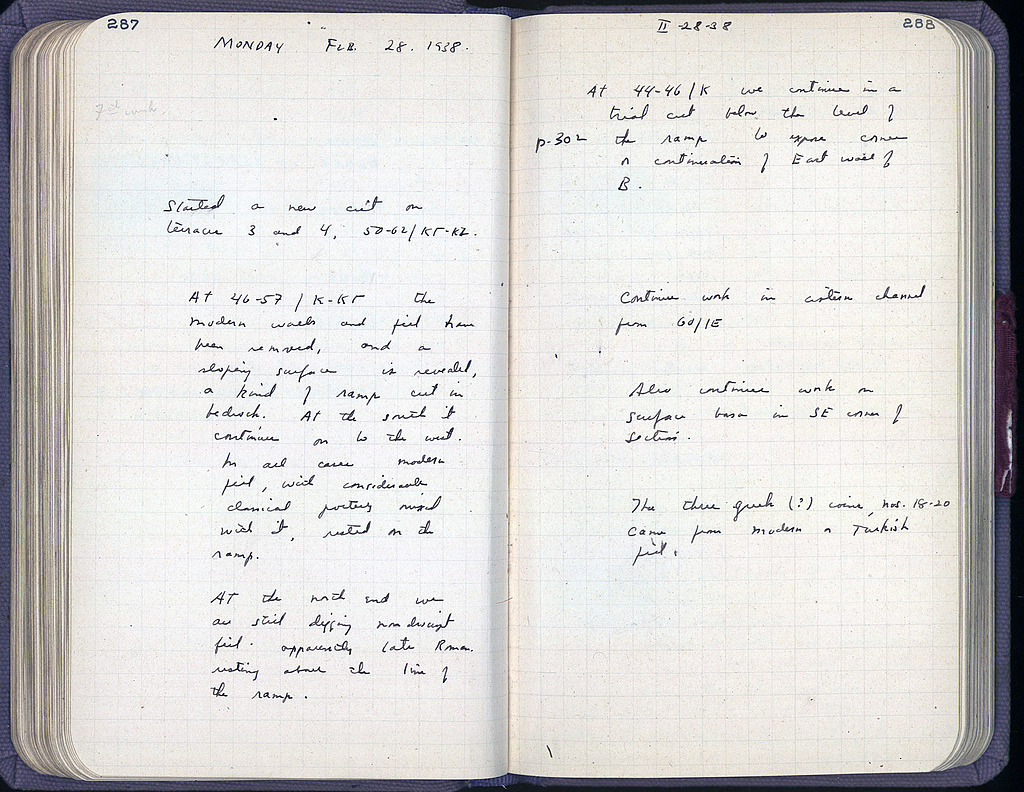 287
MONDAY FEB. 28. 1938.
7th week
Started a new cut on
terraces 3 and 4, 50-62/ΚΓ-ΚΖ.
At 46-57 / Κ-ΚΓ the
modern walls and fill have
been removed, and a
sloping surface is revealed,
a kind of ramp cut in
bedrock. At the south it
continues on to the west.
In all cases modern
fill, with considerable
classical pottery mixed
with it, rested on the
ramp.
At the north end we
are still digging nondescript
fill. apparently late Roman.
resting above the line of
the ramp.
II-28-38
288
At 44-46/Κ we continue in a
trial cut below the level of
p-302 the ramp to expose corner
or continuation of East wall of
B.
Continue work in cistern channel
from 60/ΙΕ
Also continue work on
surface basin in SE corner of
section.
The three greek (?) coins, nos. 18-20
came from modern or Turkish
fill.